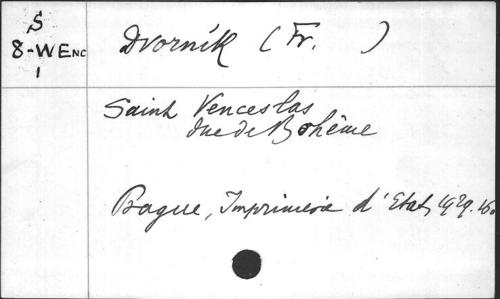 S
8-WENC
1
Dvorník (Fr. )
Saint Venceslas
duc de Bohême
Prague, Imprimerie d'Etat, 1929. 160